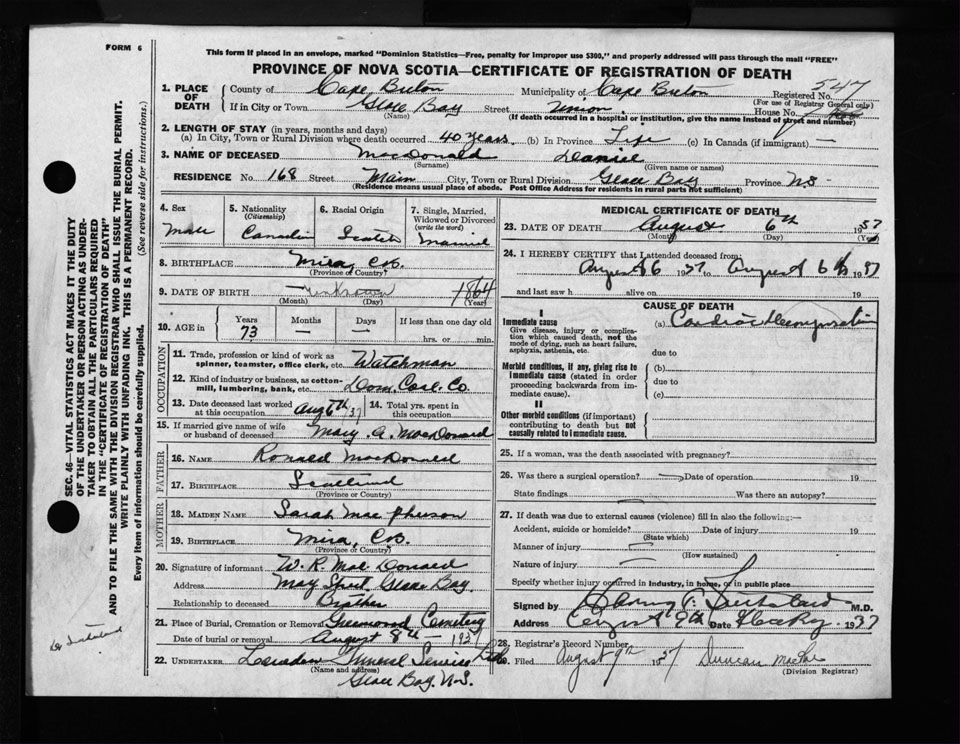 FORM 6
This form if placed in an envelope, marked "Dominion Statistics—Free, penalty for improper use $300," and properly addressed will pass through the mail "FREE"
PROVINCE OF NOVA SCOTIA—CERTIFICATE OF REGISTRATION OF DEATH
547
1. PLACE OF DEATH County of Cape Breton Municipality of Cape Breton Registered No.
(For use of Registrar General only)
If in City or Town Glace Bay Street Union House No.
(Name) (If death occurred in a hospital or institution, give the name instead of street and number)
2. LENGTH OF STAY (in years, months and days)
(a) In City, Town or Rural Division where death occurred 40 years. (b) In Province Life (c) In Canada (if immigrant) —
3. NAME OF DECEASED MacDonald Daniel
(Surname) (Given name or names)
RESIDENCE No. 168 Street Main City, Town or Rural Division Glace Bay Province NS
(Residence means usual place of abode. Post Office Address for residents in rural parts not sufficient)
4. Sex Male
5. Nationality (Citizenship) Canadian
6. Racial Origin Scotch
7. Single, Married, Widowed or Divorced (write the word) Married
8. BIRTHPLACE Mira, C.B.
(Province or Country)
9. DATE OF BIRTH 1864
(Month) (Day) (Year)
10. AGE in Years 73 Months — Days — If less than one day old hrs. or min.
OCCUPATION
11. Trade, profession or kind of work as spinner, teamster, office clerk, etc. Watchman
12. Kind of industry or business, as cotton-mill, lumbering, bank, etc. Dom. Coal Co.
13. Date deceased last worked at this occupation Aug 6th 37
14. Total yrs. spent in this occupation
15. If married give name of wife or husband of deceased Mary A. MacDonald
FATHER
16. NAME Ronald MacDonald
17. BIRTHPLACE Scotland
(Province or Country)
MOTHER
18. MAIDEN NAME Sarah MacPherson
19. BIRTHPLACE Mira, C.B.
(Province or Country)
20. Signature of informant W. R. MacDonald
Address May Street Glace Bay.
Relationship to deceased Brother
21. Place of Burial, Cremation or Removal Greenwood Cemetery
Date of burial or removal August 8th — 1937
22. UNDERTAKER Funeral Service Ltd
(Name and address)
Glace Bay. N.S.
MEDICAL CERTIFICATE OF DEATH
23. DATE OF DEATH August 6th 1937
(Month) (Day) (Year)
24. I HEREBY CERTIFY that I attended deceased from:
August 6 1937 to August 6th 1937
and last saw h alive on 19
CAUSE OF DEATH
I
Immediate cause
Give disease, injury or complication which caused death, not the mode of dying, such as heart failure, asphyxia, asthenia, etc.
(a) Cardiac Decompensation
due to
Morbid conditions, if any, giving rise to immediate cause (stated in order proceeding backwards from immediate cause).
(b)
due to
(c)
II
Other morbid conditions (if important) contributing to death but not causally related to immediate cause.
25. If a woman, was the death associated with pregnancy?
26. Was there a surgical operation? — Date of operation 19
State findings Was there an autopsy?
27. If death was due to external causes (violence) fill in also the following:—
Accident, suicide or homicide? Date of injury 19
(State which)
Manner of injury
(How sustained)
Nature of injury
Specify whether injury occurred in industry, in home, or in public place
Signed by M.D.
Address Date 1937
28. Registrar's Record Number
29. Filed August 9th 1937 Duncan MacRae
(Division Registrar)
SEC. 46—VITAL STATISTICS ACT MAKES IT THE DUTY
OF THE UNDERTAKER OR PERSON ACTING AS UNDER-
TAKER TO OBTAIN ALL THE PARTICULARS REQUIRED
IN THE "CERTIFICATE OF REGISTRATION OF DEATH"
AND TO FILE THE SAME WITH THE DIVISION REGISTRAR WHO SHALL ISSUE THE BURIAL PERMIT.
WRITE PLAINLY WITH UNFADING INK. THIS IS A PERMANENT RECORD.
Every item of information should be carefully supplied.
(See reverse side for instructions.)